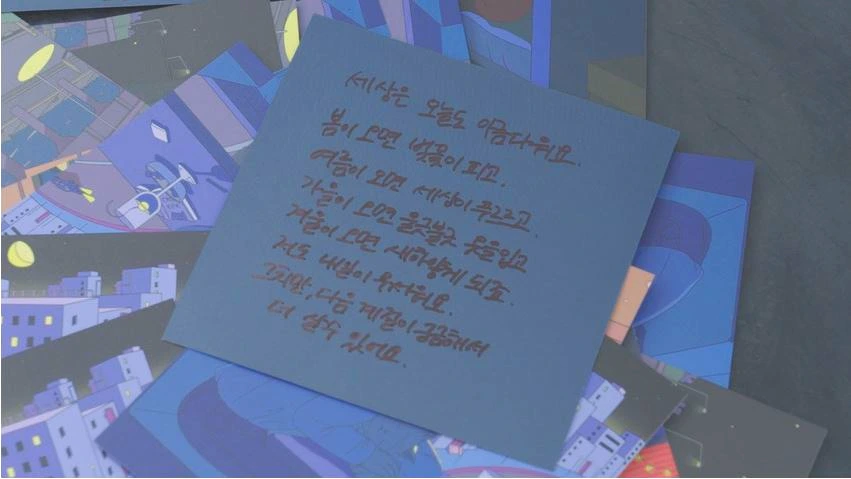 세상은 오늘도 아름다워요.
봄이 오면 벚꽃이 피고.
여름이 오면 세상이 푸르르고.
가을이 오면 울긋불긋 옷을입고
겨울이 오면 새하얗게 되죠.
저도 내일이 무서워요.
그치만, 다음 계절이 궁금해서
더 살수 있어요.